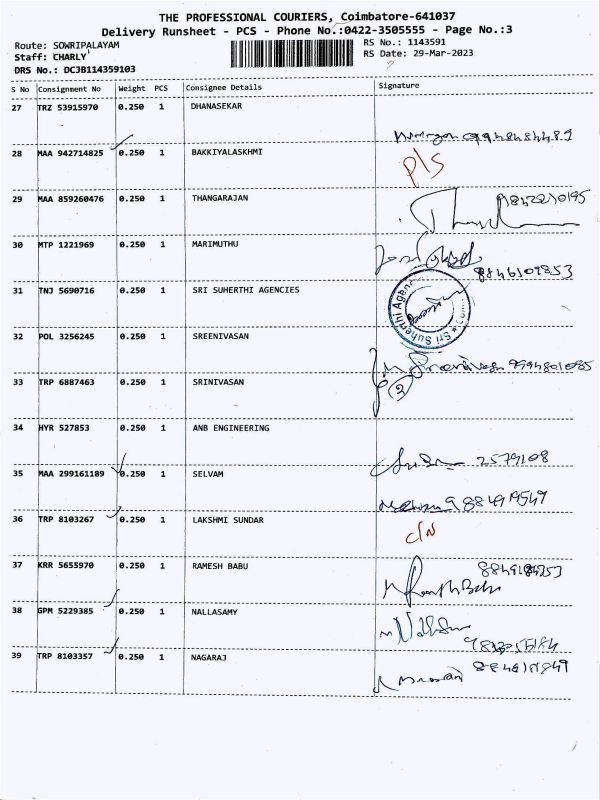 THE PROFESSIONAL COURIERS, Coimbatore-641037
Delivery Runsheet - PCS - Phone No.:0422-3505555 - Page No.:3
Route: SOWRIPALAYAM RS No.: 1143591
Staff: CHARLY RS Date: 29-Mar-2023
DRS No.: DCJB114359103
S No Consignment No Weight PCS Consignee Details Signature
27 TRZ 53915970 0.250 1 DHANASEKAR
28 MAA 942714825 0.250 1 BAKKIYALASKHMI
P/S
29 MAA 859260476 0.250 1 THANGARAJAN
30 MTP 1221969 0.250 1 MARIMUTHU
31 TNJ 5690716 0.250 1 SRI SUHERTHI AGENCIES
Sri Suherthi Agenc
32 POL 3256245 0.250 1 SREENIVASAN
33 TRP 6887463 0.250 1 SRINIVASAN
34 HYR 527853 0.250 1 ANB ENGINEERING
2579108
35 MAA 299161189 0.250 1 SELVAM
36 TRP 8103267 0.250 1 LAKSHMI SUNDAR
C/N
37 KRR 5655970 0.250 1 RAMESH BABU
38 GPM 5229385 0.250 1 NALLASAMY
39 TRP 8103357 0.250 1 NAGARAJ